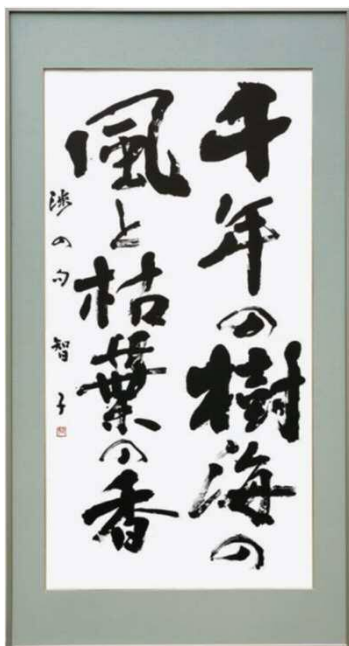 千年の樹海の
風と枯葉の香
渉の句 智子